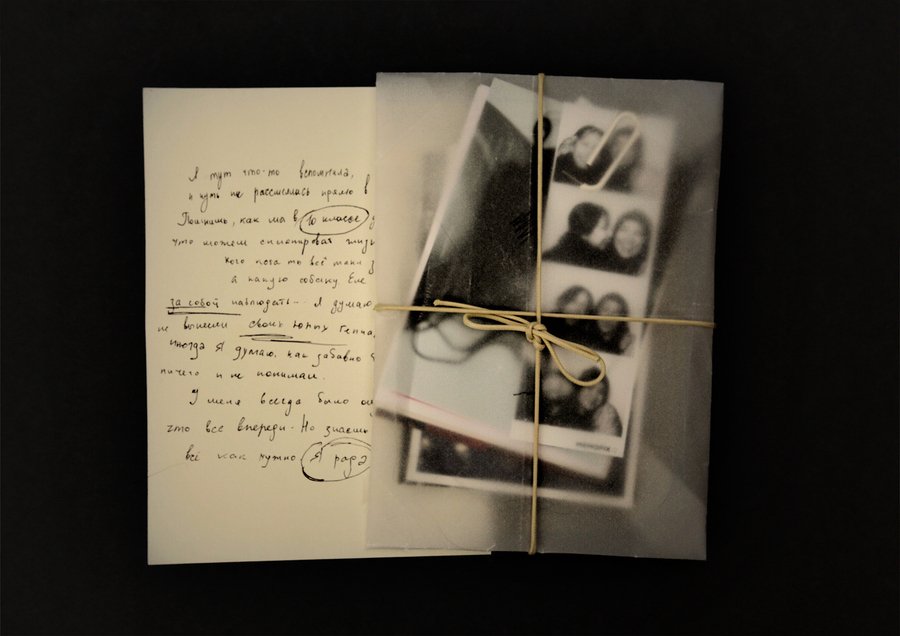 Я тут что-то вспомнила,
и чуть не рассмеялась прямо в
Помнишь, как мы в 10 классе
что можем спланировать жизнь
кого-то всё таки
а какую собаку
за собой наблюдать... Я думаю
не вынесли своих юных
иногда я думаю, как забавно
ничего и не понимали.
У меня всегда было
что все впереди. Но знаешь
всё как нужно. Я рада